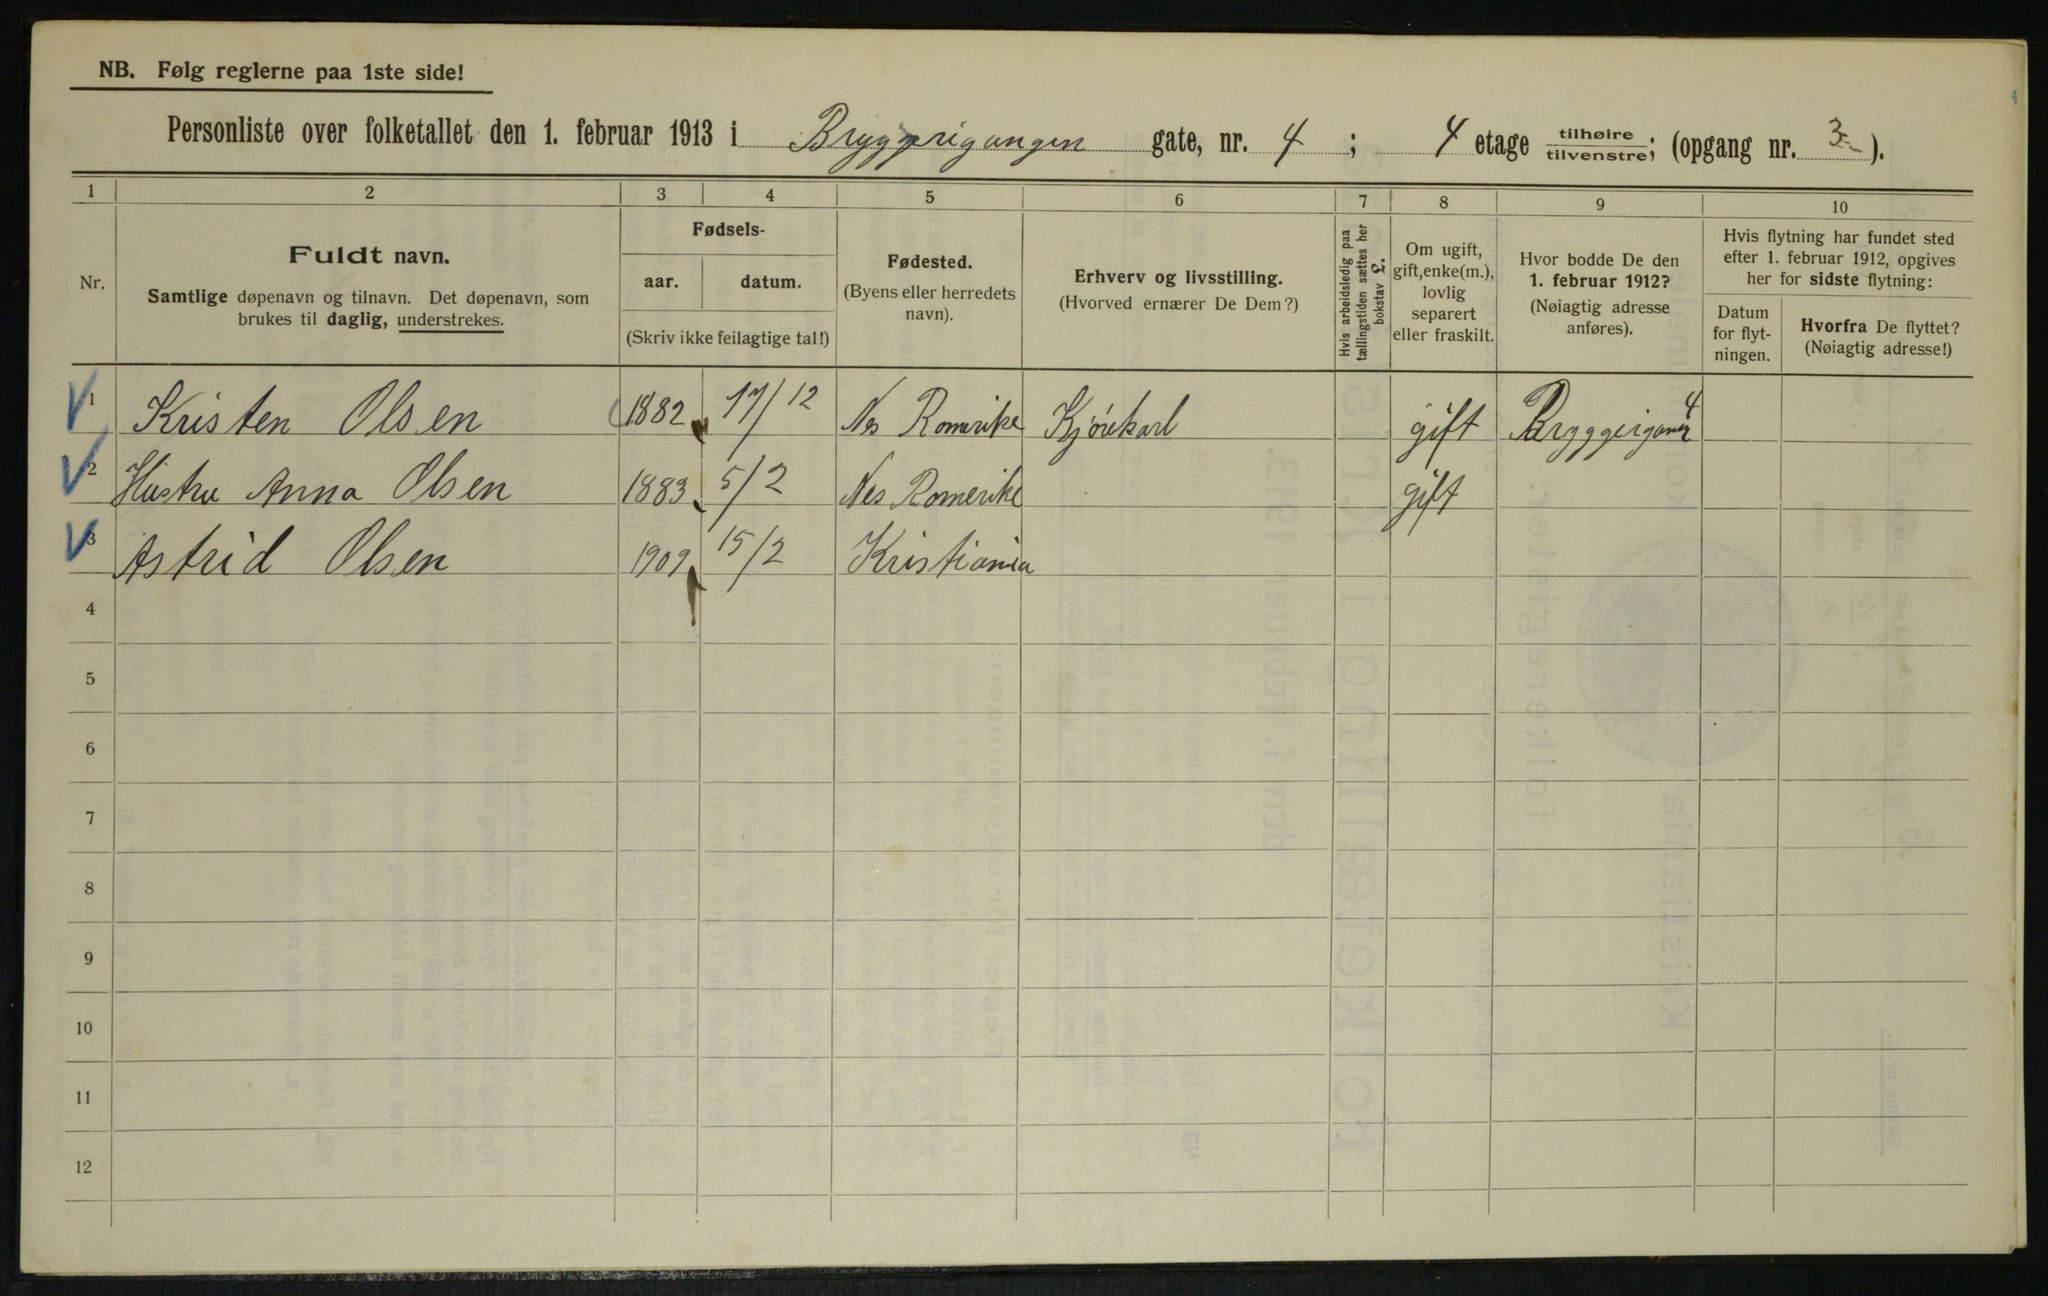 NB. Følg reglerne paa 1ste side!
Personliste over folketallet den 1. februar 1913 i Bryggerigangen gate, nr. 4 ; 4 etage tilhøire tilvenstre; (opgang nr. 3 ).
1 2 3 4 5 6 7 8 9 10
Nr.
Fuldt navn.
Samtlige døpenavn og tilnavn. Det døpenavn, som
brukes til daglig, understrekes.
Fødsels-
aar. datum.
(Skriv ikke feilagtige tal!)
Fødested.
(Byens eller herredets
navn).
Erhverv og livsstilling.
(Hvorved ernærer De Dem?)
Hvis arbeidsledig paa
tællingstiden sættes her
bokstav L.
Om ugift,
gift, enke(m.),
lovlig
separert
eller fraskilt.
Hvor bodde De den
1. februar 1912?
(Nøiagtig adresse
anføres).
Hvis flytning har fundet sted
efter 1. februar 1912, opgives
her for sidste flytning:
Datum
for flyt-
ningen.
Hvorfra De flyttet?
(Nøiagtig adresse!)
1 Kristen Olsen 1882 17/12 Nes Romerike Kjørekarl gift 4
2 Hustru Anna Olsen 1883 5/2 Nes Romerike gift
3 Astrid Olsen 1909 15/2 Kristiania
4
5
6
7
8
9
10
11
12